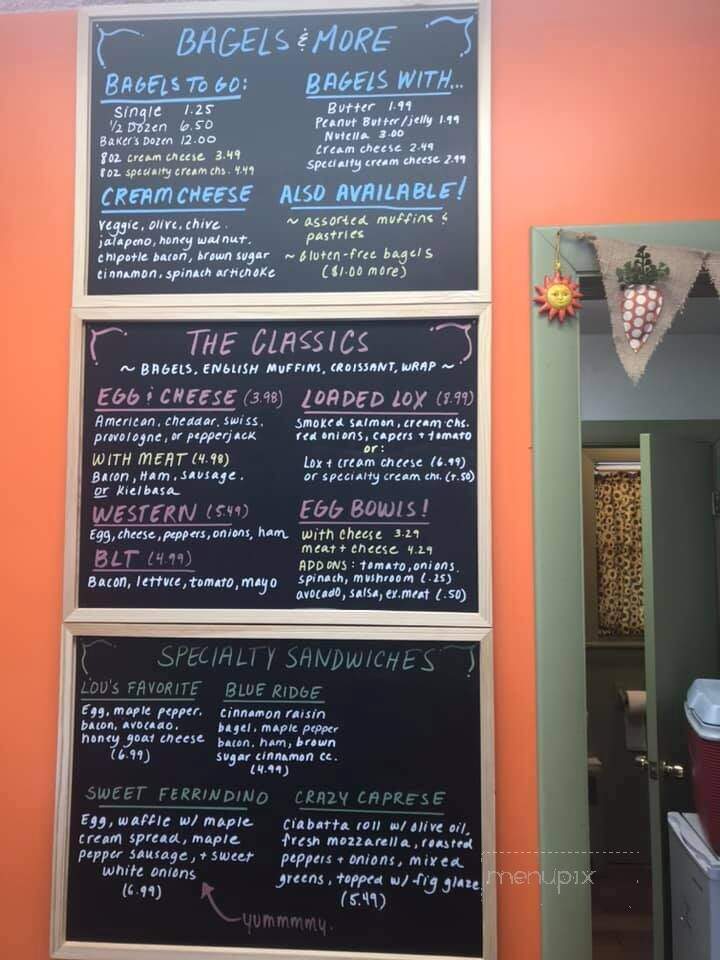 BAGELS & MORE
BAGELS TO GO:
Single 1.25
1/2 Dozen 6.50
Baker's Dozen 12.00
8oz cream cheese 3.49
8oz specialty cream chs. 4.49
BAGELS WITH...
Butter 1.99
Peanut Butter/jelly 1.99
Nutella 3.00
Cream cheese 2.49
Specialty cream cheese 2.99
CREAM CHEESE
veggie, olive, chive.
jalapeno, honey walnut.
chipotle bacon, brown sugar
cinnamon, spinach artichoke
ALSO AVAILABLE!
~ assorted muffins &
pastries
~ Gluten-free bagels
($1.00 more)
THE CLASSICS
~ BAGELS, ENGLISH MUFFINS, CROISSANT, WRAP ~
EGG & CHEESE (3.98)
American, cheddar, swiss,
provologne, or pepperjack
WITH MEAT (4.98)
Bacon, Ham, Sausage,
or Kielbasa
WESTERN (5.49)
Egg, cheese, peppers, onions, ham
BLT (4.99)
Bacon, lettuce, tomato, mayo
LOADED LOX (8.99)
Smoked salmon, cream chs.
red onions, capers + tomato
or:
Lox + cream cheese (6.99)
or specialty cream chs. (7.50)
EGG BOWLS!
with cheese 3.29
meat + cheese 4.29
ADD ONS: tomato, onions,
spinach, mushroom (.25)
avocado, salsa, ex.meat (.50)
SPECIALTY SANDWICHES
LOU'S FAVORITE
Egg, maple pepper,
bacon, avocado,
honey goat cheese
(6.99)
BLUE RIDGE
cinnamon raisin
bagel, maple pepper
bacon, ham, brown
sugar cinnamon cc.
(4.99)
SWEET FERRINDINO
Egg, waffle w/ maple
cream spread, maple
pepper sausage, + sweet
white onions
(6.99)
yummmmy.
CRAZY CAPRESE
Ciabatta roll w/ olive oil,
fresh mozzarella, roasted
peppers + onions, mixed
greens, topped w/ fig glaze
(5.49)
menupix